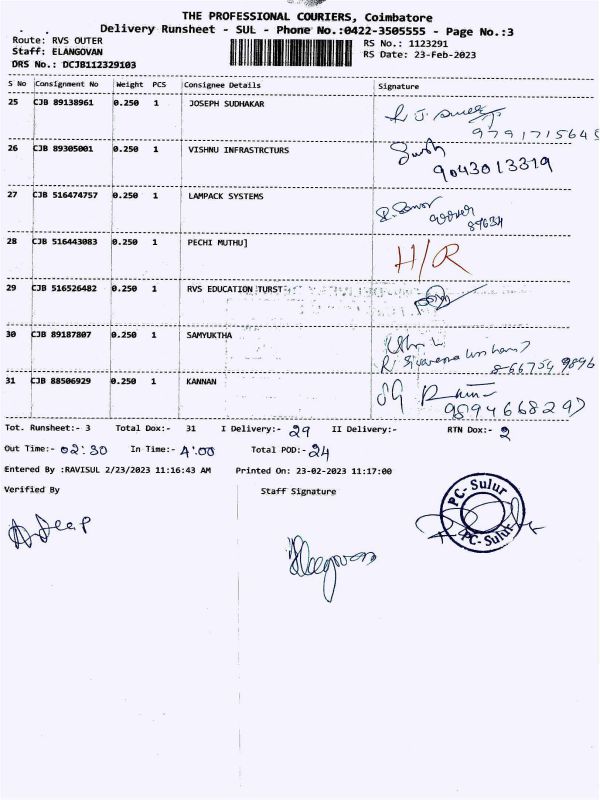 THE PROFESSIONAL COURIERS, Coimbatore
Delivery Runsheet - SUL - Phone No.:0422-3505555 - Page No.:3
Route: RVS OUTER
Staff: ELANGOVAN
DRS No.: DCJB112329103
RS No.: 1123291
RS Date: 23-Feb-2023
S No Consignment No Weight PCS Consignee Details Signature
25 CJB 89138961 0.250 1 JOSEPH SUDHAKAR
9791715645
26 CJB 89305001 0.250 1 VISHNU INFRASTRCTURS
9043013319
27 CJB 516474757 0.250 1 LAMPACK SYSTEMS
28 CJB 516443083 0.250 1 PECHI MUTHU] H/R
29 CJB 516526482 0.250 1 RVS EDUCATION TURST
30 CJB 89187807 0.250 1 SAMYUKTHA
8667549896
31 CJB 88506929 0.250 1 KANNAN
9894668297
Tot. Runsheet:- 3 Total Dox:- 31 I Delivery:- 29 II Delivery:- RTN Dox:- 2
Out Time:- 02:30 In Time:- 4'00 Total POD:- 24
Entered By :RAVISUL 2/23/2023 11:16:43 AM Printed On: 23-02-2023 11:17:00
Verified By Staff Signature
PC-Sulur
PC-Sulur